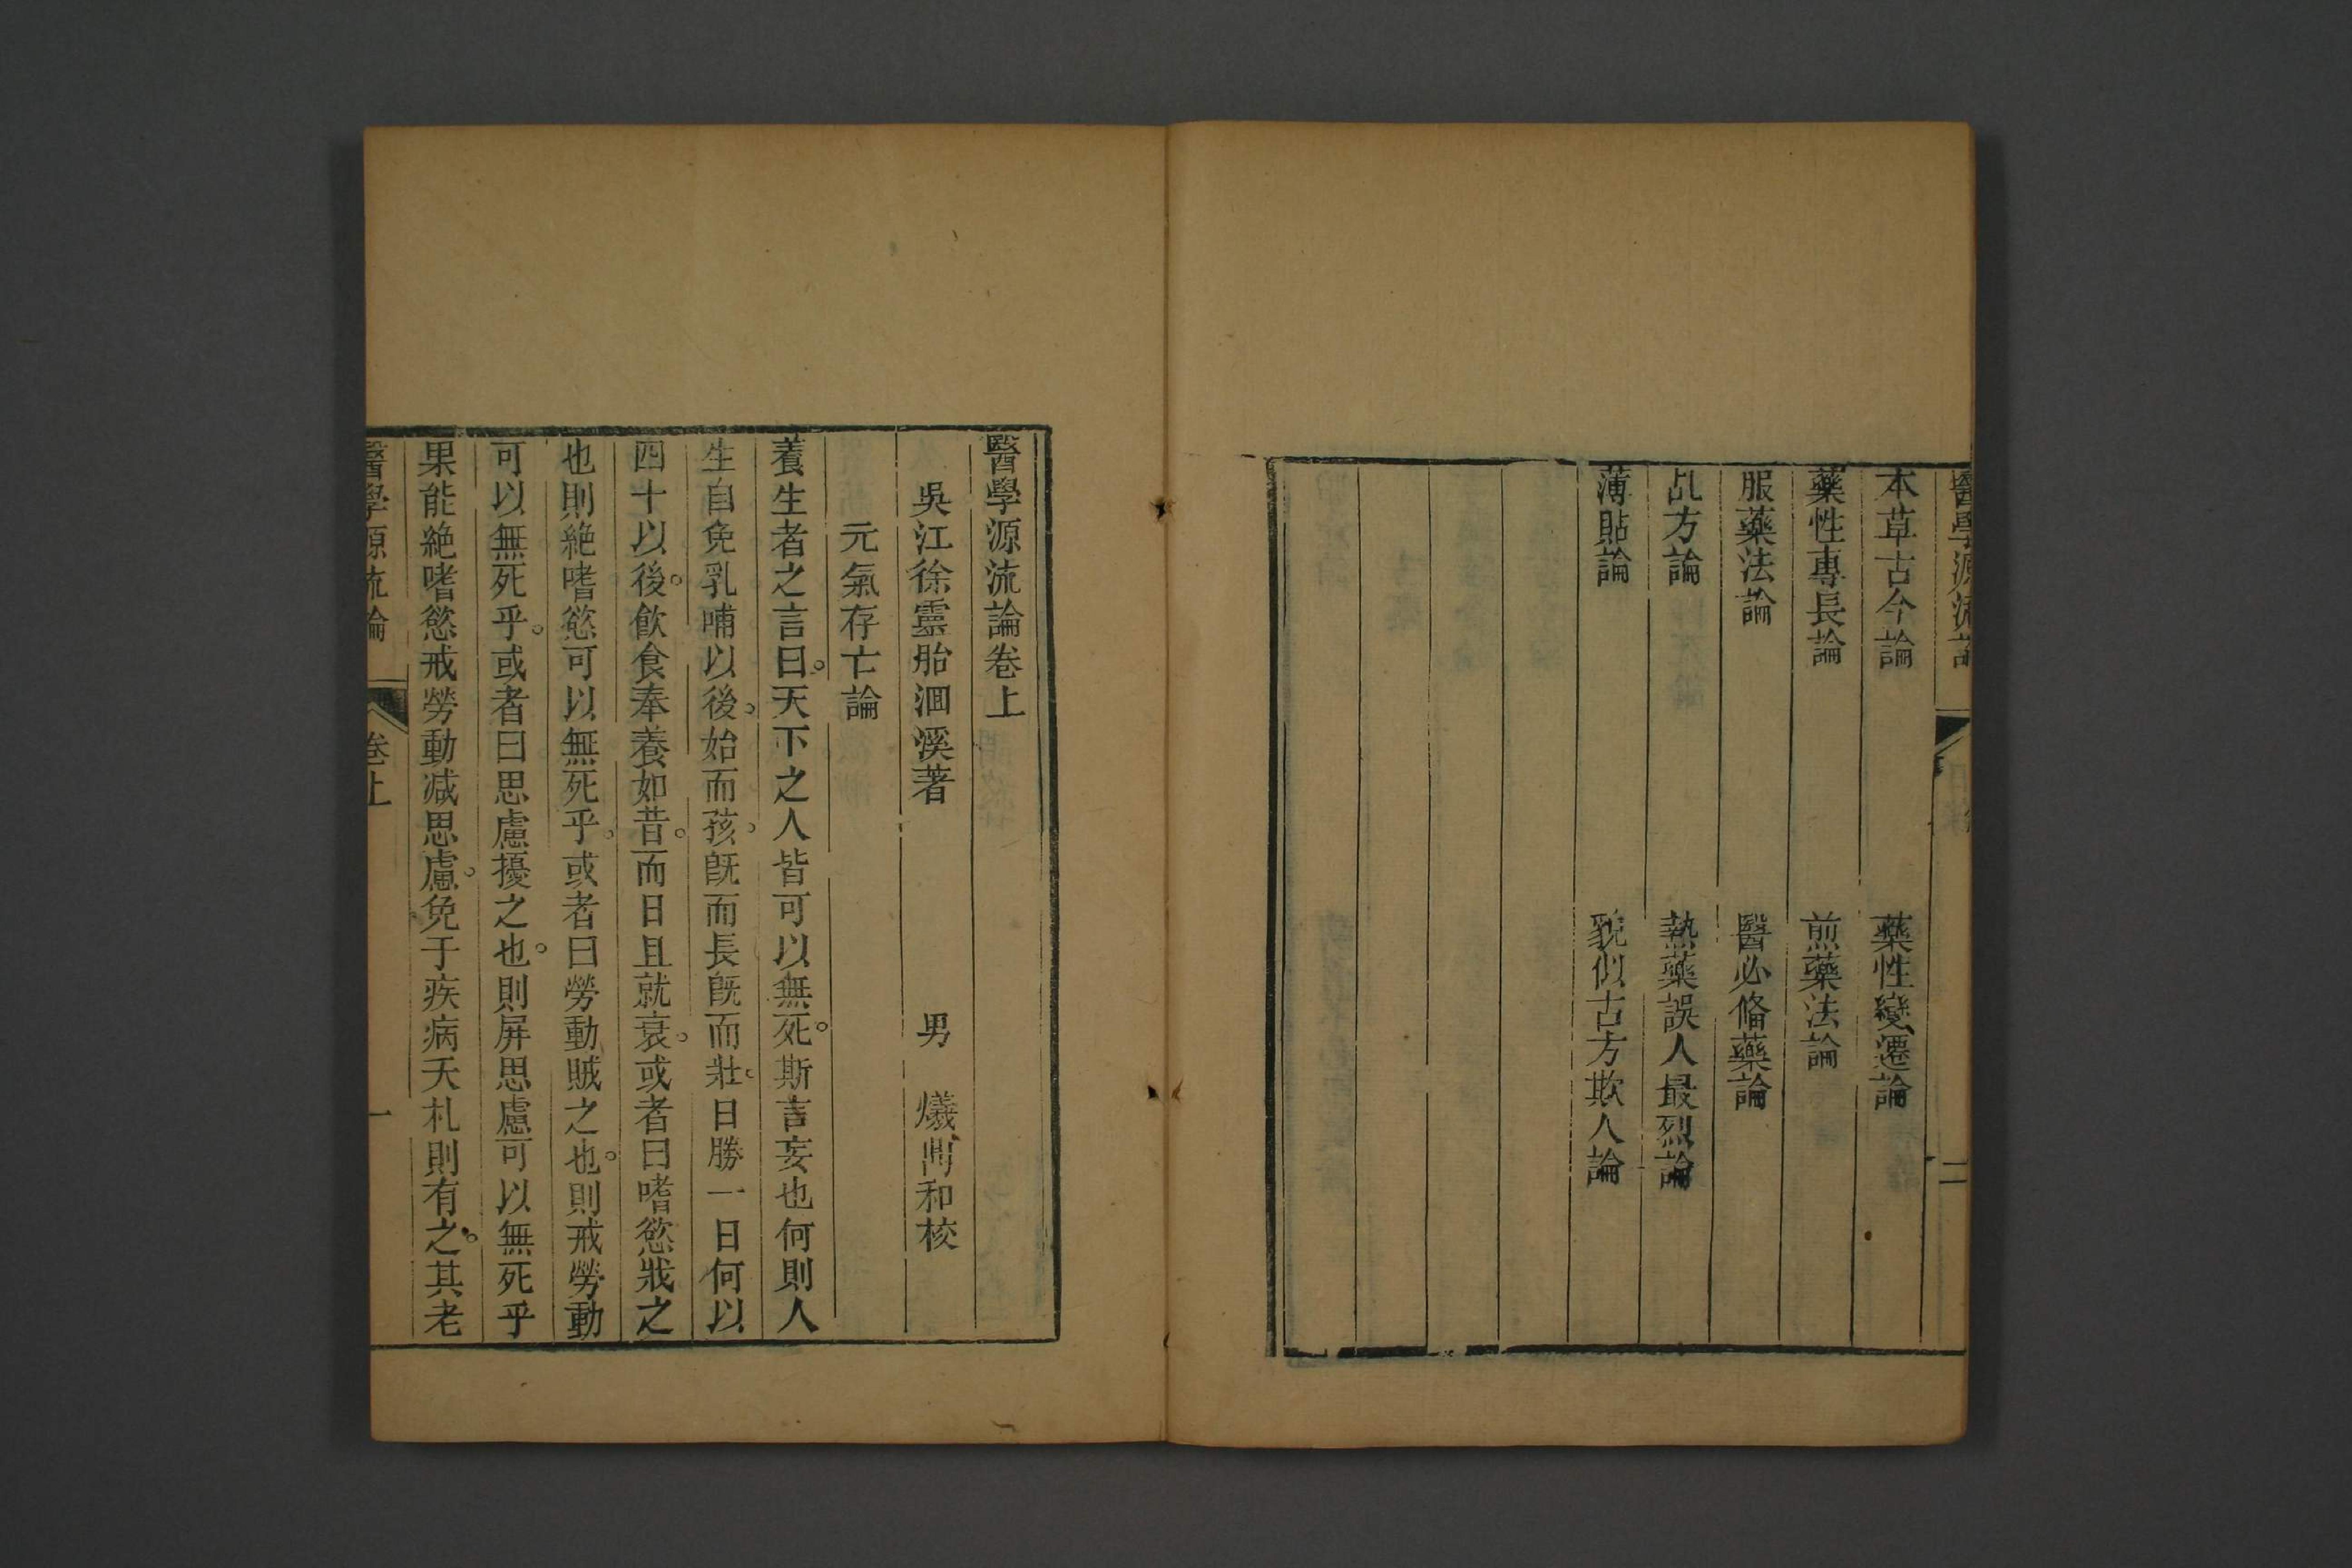 醫學源流論
二
本草古今論　藥性變遷論
藥性專長論　煎藥法論
服藥法論　醫必備藥論
乩方論　熱藥誤人最烈論
薄貼論　貌似古方欺人論
醫學源流論卷上
吳江徐靈胎洄溪著　男　爔鼎和校
元氣存亡論
養生者之言曰。天下之人皆可以無死。斯言妄也何則人
生自免乳哺以後。始而孩。旣而長旣而壯。日勝一日何以
四十以後。飮食奉養如昔。而日且就衰。或者曰嗜慾戕之
也則絶嗜慾可以無死乎。或者曰勞動賊之也。則戒勞動
可以無死乎。或者曰思慮擾之也。則屏思慮可以無死乎
果能絶嗜慾戒勞動减思慮。免于疾病夭札則有之。其老
醫學源流論　卷上　一